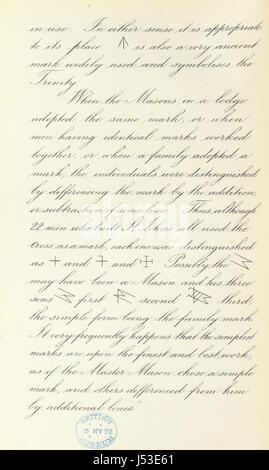 in use. In either sense it is appropriate
to its place ↑ is also a very ancient
mark widely used and symbolises the
Trinity.
When the Masons in a lodge
adopted the same mark, or when
men having identical marks worked
together, or when a family adopted a
mark, the individuals were distinguished
by differencing the mark by the addition,
or subtraction of some lines. Thus although
22 men who built St. all used the
Cross, as a mark, each one was distinguished
as + and + and ✠ Possibly the
may have been a Mason and his three
sons first second third
the simple form being the family mark.
It very frequently happens that the simplest
marks are upon the finest and best work,
as if the Master Mason chose a simple
mark, and others differenced from him
by additional lines."
BRITISH
5 MY 92
MUSEUM
alamy
alamy
Image ID: J53E61
www.alamy.com